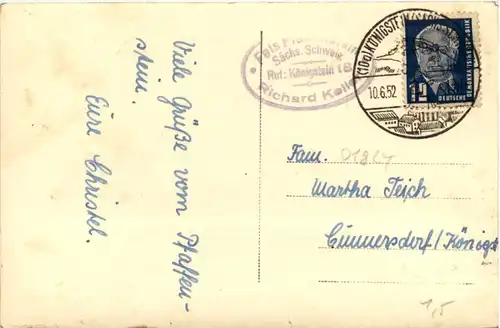 Viele Grüße vom Pfaffen-
stein.
Eure Christel.
Sächs. Schweiz
Ruf: Königstein 18
Richard
(10a) KÖNIGSTEIN
10.6.52
12
DEUTSCHE
DEMOKRATISCHE REPUBLIK
Fam.
Martha Teich
Cunnersdorf/Königs
1,5